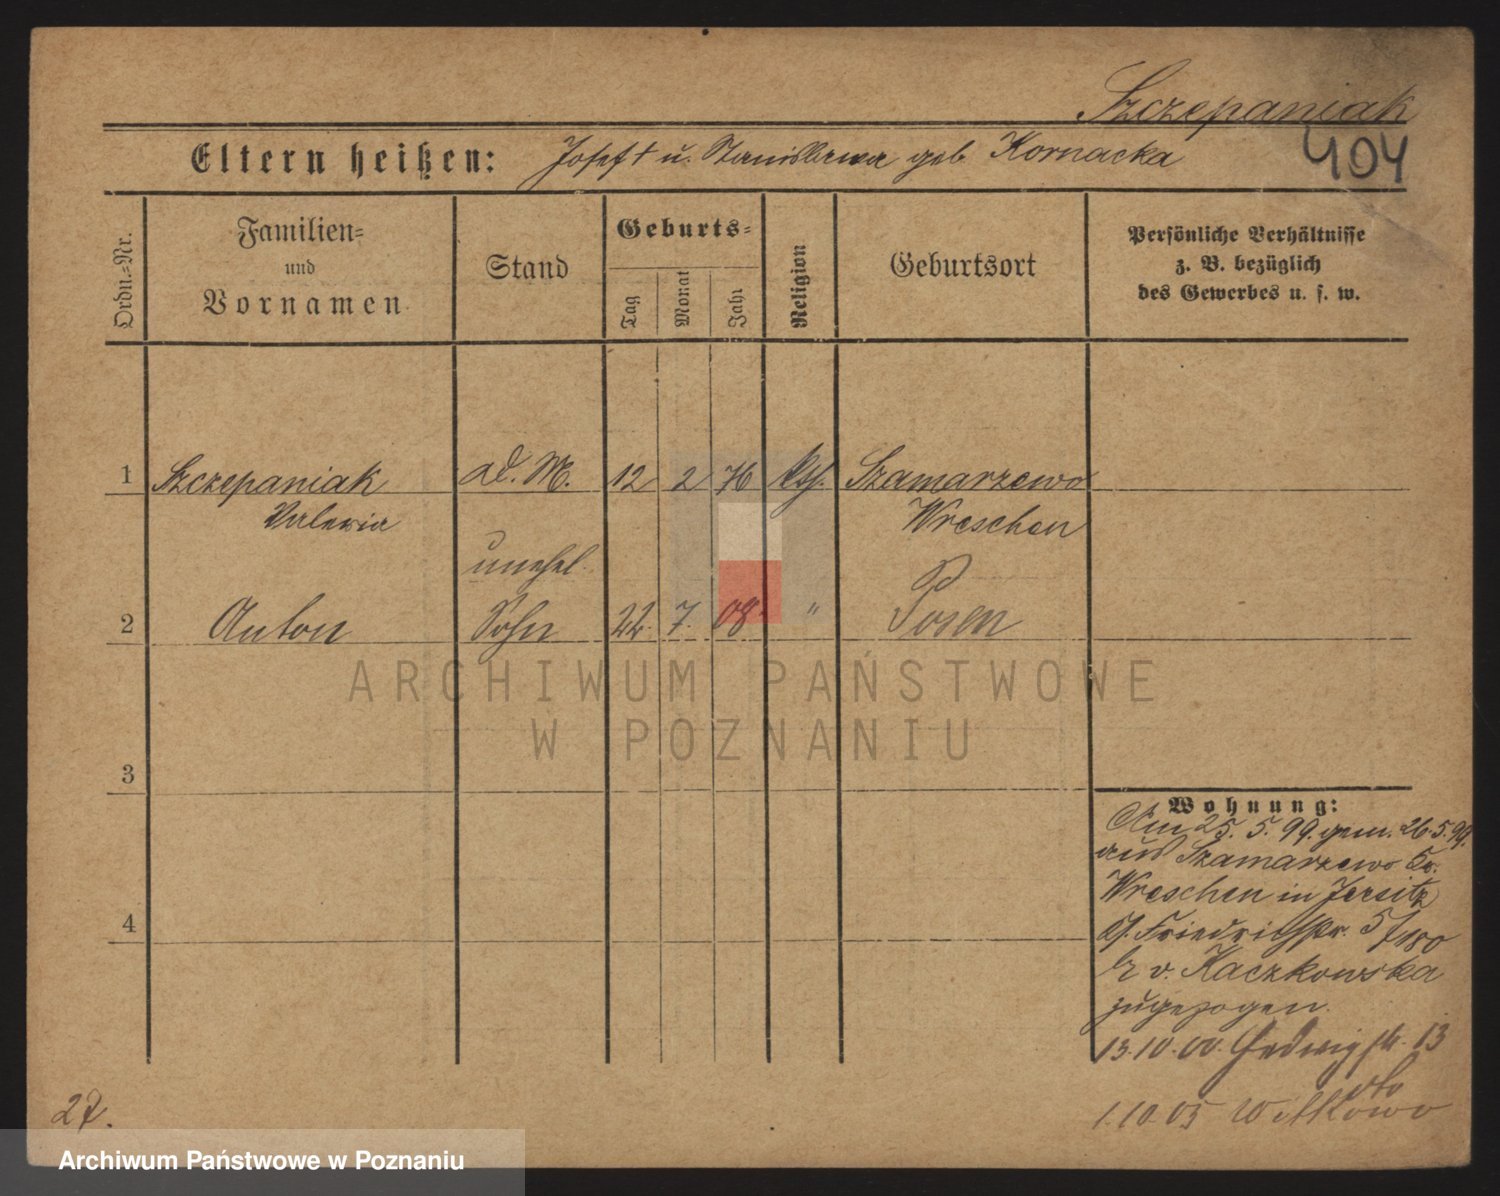 Szczepaniak
404
Eltern heißen: Josef † u. Stanislawa geb. Kornacka
Ordn.=Nr.
Familien=
und
Vornamen
Stand
Geburts=
Tag
Monat
Jahr
Religion
Geburtsort
Persönliche Verhältnisse
z. B. bezüglich
des Gewerbes u. s. w.
1 Szczepaniak ad. M. 12 2 76 kth. Szamarzewo
Valeria Wreschen
unehel.
2 Anton Sohn 22. 7. 08. " Posen
3
4
Wohnung:
Am 25. 5. 99. gem. 26. 5. 99.
aus Szamarzewo Kr.
Wreschen in Jersitz
Gr. Friedrichstr.
b. v. Kaczkowska
zugezogen.
13.10.00. Hedwigstr. 13
1.10.05 Witkowo
27.
ARCHIWUM PAŃSTWOWE
W POZNANIU
Archiwum Państwowe w Poznaniu